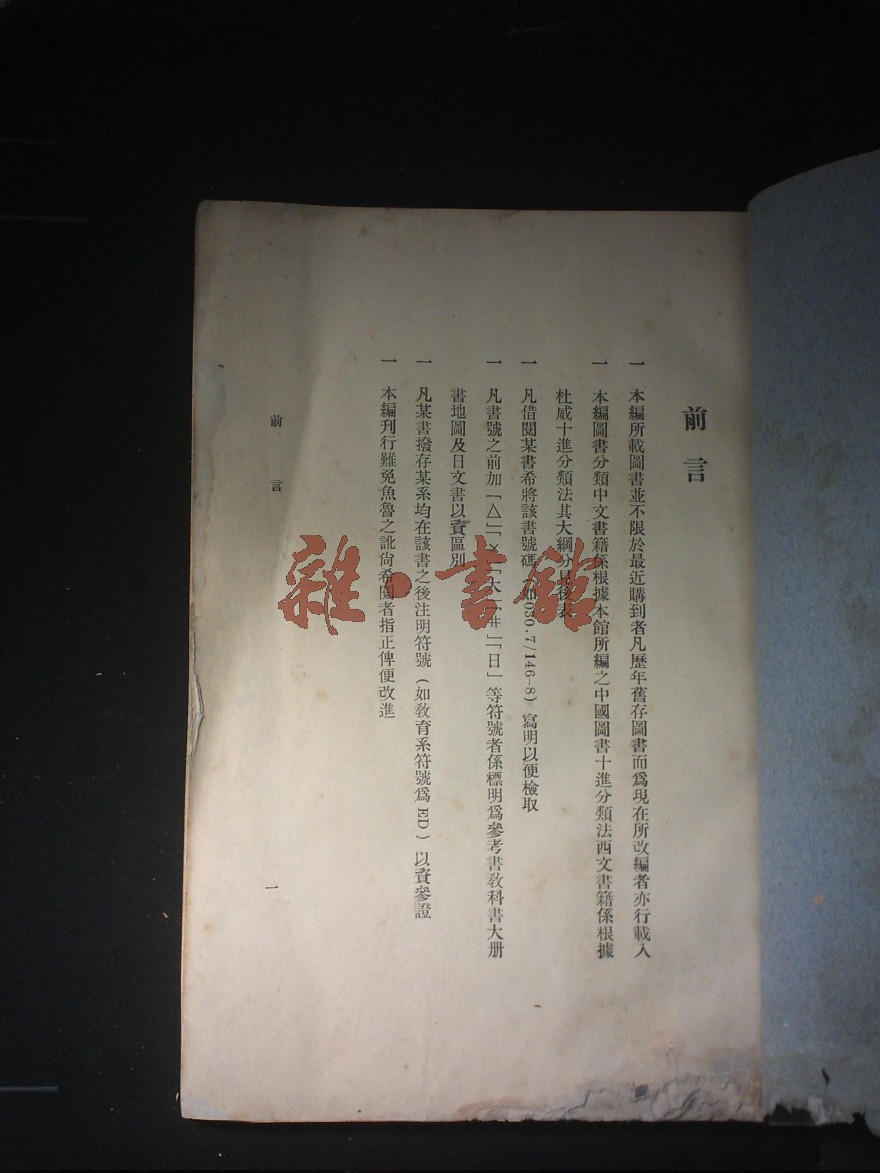 前言
一 本編所載圖書並不限於最近購到者凡歷年舊存圖書而為現在所改編者亦行載入
一 本編圖書分類中文書籍係根據本館所編之中國圖書十進分類法西文書籍係根據
杜威十進分類法其大綱分見後表
一 凡借閱某書希將該書號碼(如030.7/146-8)寫明以便檢取
一 凡書號之前加「△」「×」「大」「#」「日」等符號者係標明為參考書教科書大册
書地圖及日文書以資區別
一 凡某書撥存某系均在該書之後注明符號(如教育系符號為ED)以資參證
一 本編刊行難免魚魯之訛尙希閱者指正俾便改進
前言
一
雜·書館